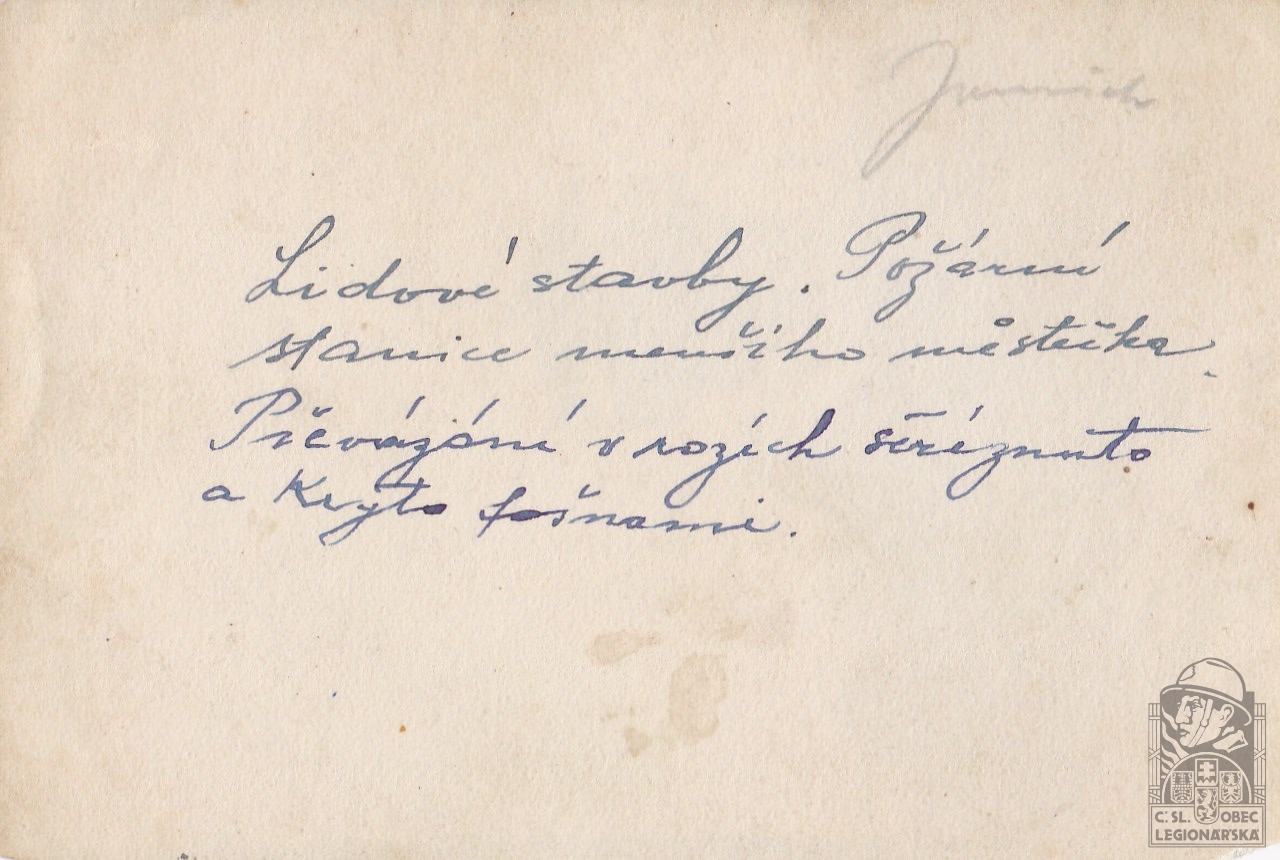 Lidové stavby. Požární
stanice menšího městečka.
Převázání v rozích seříznuto
a kryto fošnami.
Č.SL. OBEC
LEGIONÁŘSKÁ